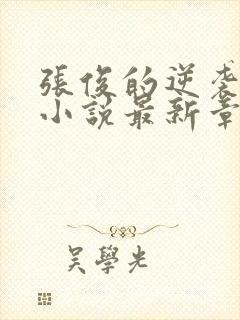 張俊的逆袭
小說最新章
吳學光